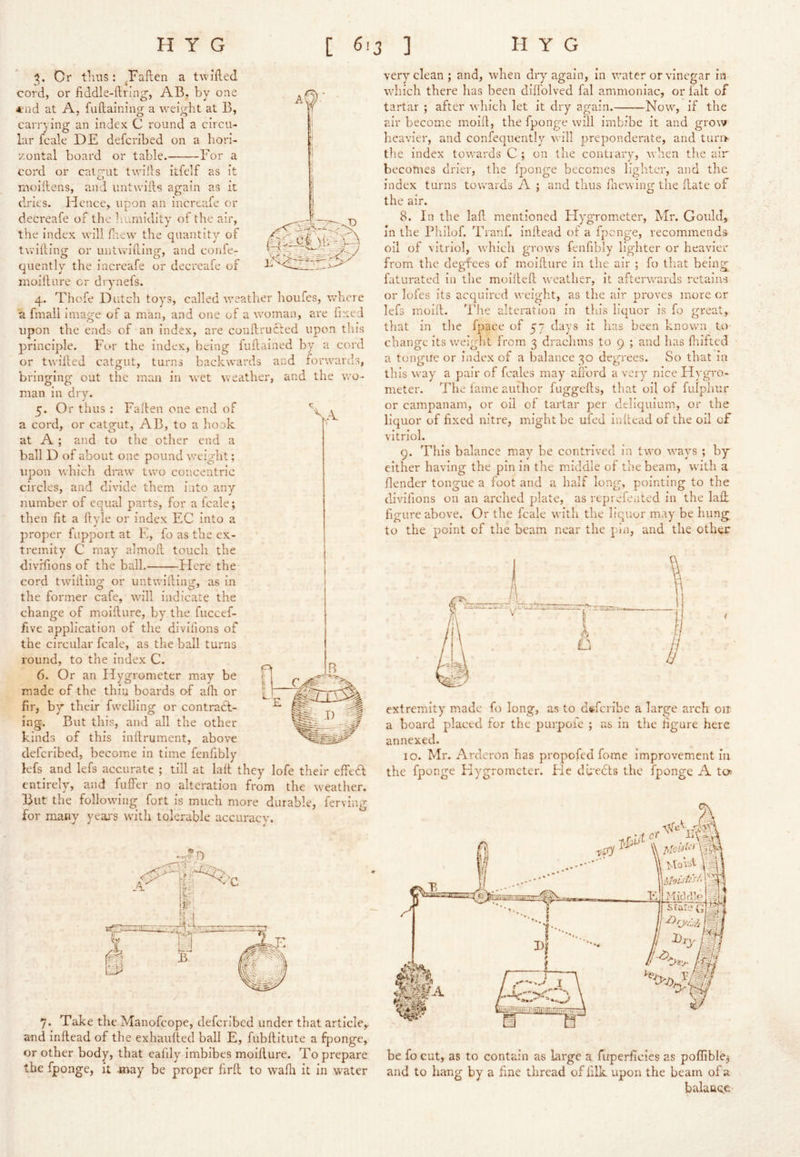 HYG [ 613 ] HYG
3. Or thus: Faſten a twiſted
cord, or fiddle-ſtring, AB, by one
end at A, ſuſtaining a weight at B,
carrying an index C round a circu-
lar ſcale DE deſcribed on a hori-
zontal board or table.——For a
cord or catgut twiſts itſelf as it
moiſtens, and untwiſts again as it
dries. Hence, upon an increaſe or
decreaſe of the humidity of the air,
the index will ſhew the quantity of
twiſting or untwiſting, and conſe-
quently the increaſe or decreaſe of
moiſture or dryneſs.
A
D
C
B
E
4. Thoſe Dutch toys, called weather houſes, where
a ſmall image of a man, and one of a woman, are fixed
upon the ends of an index, are conſtructed upon this
principle. For the index, being ſuſtained by a cord
or twiſted catgut, turns backwards and forwards,
bringing out the man in wet weather, and the wo-
man in dry.
5. Or thus: Faſten one end of
a cord, or catgut, AB, to a hook
at A; and to the other end a
ball D of about one pound weight;
upon which draw two concentric
circles, and divide them into any
number of equal parts, for a ſcale;
then fit a ſtyle or index EC into a
proper ſupport at E, ſo as the ex-
tremity C may almoſt touch the
diviſions of the ball.——Here the
cord twiſting or untwiſting, as in
the former caſe, will indicate the
change of moiſture, by the ſucceſ-
ſive application of the diviſions of
the circular ſcale, as the ball turns
round, to the index C.
6. Or an Hygrometer may be
made of the thin boards of aſh or
fir, by their ſwelling or contract-
ing. But this, and all the other
kinds of this inſtrument, above
deſcribed, become in time ſenſibly
leſs and leſs accurate; till at laſt they loſe their effect
entirely, and ſuffer no alteration from the weather.
But the following ſort is much more durable, ſerving
for many years with tolerable accuracy.
A
B
C
E
D
D
A
C
B
E
7. Take the Manoſcope, deſcribed under that article,
and inſtead of the exhauſted ball E, ſubſtitute a ſponge,
or other body, that eaſily imbibes moiſture. To prepare
the ſponge, it may be proper firſt to waſh it in water
very clean; and, when dry again, in water or vinegar in
which there has been diſſolved ſal ammoniac, or ſalt of
tartar; after which let it dry again.——Now, if the
air become moiſt, the ſponge will imbibe it and grow
heavier, and conſequently will preponderate, and turn
the index towards C; on the contrary, when the air
becomes drier, the ſponge becomes lighter, and the
index turns towards A; and thus ſhewing the ſtate of
the air.
8. In the laſt mentioned Hygrometer, Mr. Gould,
in the Philoſ. Tranſ. inſtead of a ſponge, recommends
oil of vitriol, which grows ſenſibly lighter or heavier
from the degrees of moiſture in the air; ſo that being
ſaturated in the moiſteſt weather, it afterwards retains
or loſes its acquired weight, as the air proves more or
leſs moiſt. The alteration in this liquor is ſo great,
that in the ſpace of 57 days it has been known to
change its weight from 3 drachms to 9; and has ſhifted
a tongue or index of a balance 30 degrees. So that in
this way a pair of ſcales may afford a very nice Hygro-
meter. The ſame author ſuggeſts, that oil of ſulphur
or campanam, or oil of tartar per deliquium, or the
liquor of fixed nitre, might be uſed inſtead of the oil of
vitriol.
9. This balance may be contrived in two ways; by
either having the pin in the middle of the beam, with a
ſlender tongue a foot and a half long, pointing to the
diviſions on an arched plate, as repreſented in the laſt
figure above. Or the ſcale with the liquor may be hung
to the point of the beam near the pin, and the other
extremity made ſo long, as to deſcribe a large arch on
a board placed for the purpoſe; as in the figure here
annexed.
10. Mr. Arderon has propoſed ſome improvement in
the ſponge Hygrometer. He directs the ſponge A to
B
A
D
E
I
Very Moiſt or Wet
Moiſter
Moiſt
Moiſtiſh
Middle
State G
Dryiſh
Dry
Dryer
Very Dry
be ſo cut, as to contain as large a ſuperficies as poſſible,
and to hang by a fine thread of ſilk upon the beam of a
balance